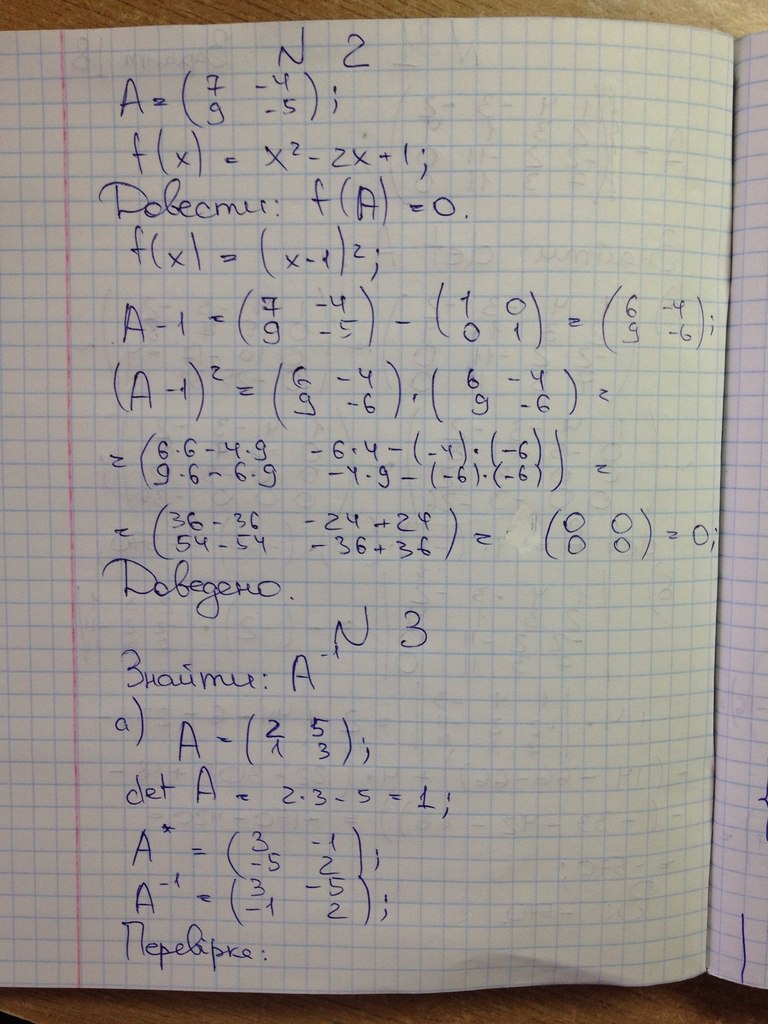 N 2
A = (7 -4
9 -5);
f(x) = x² - 2x + 1;
Довести: f(A) = 0.
f(x) = (x-1)²;
A - 1 = (7 -4
9 -5) - (1 0
0 1) = (6 -4
9 -6);
(A-1)² = (6 -4
9 -6) · (6 -4
9 -6) =
= (6·6 - 4·9 -6·4 - (-4)·(-6)
9·6 - 6·9 -4·9 - (-6)·(-6)) =
= (36-36 -24+24
54-54 -36+36) = (0 0
0 0) = 0;
Доведено.
N 3
Знайти: A⁻¹
а) A = (2 5
1 3);
det A = 2·3 - 5 = 1;
A* = (3 -1
-5 2);
A⁻¹ = (3 -5
-1 2);
Перевірка: